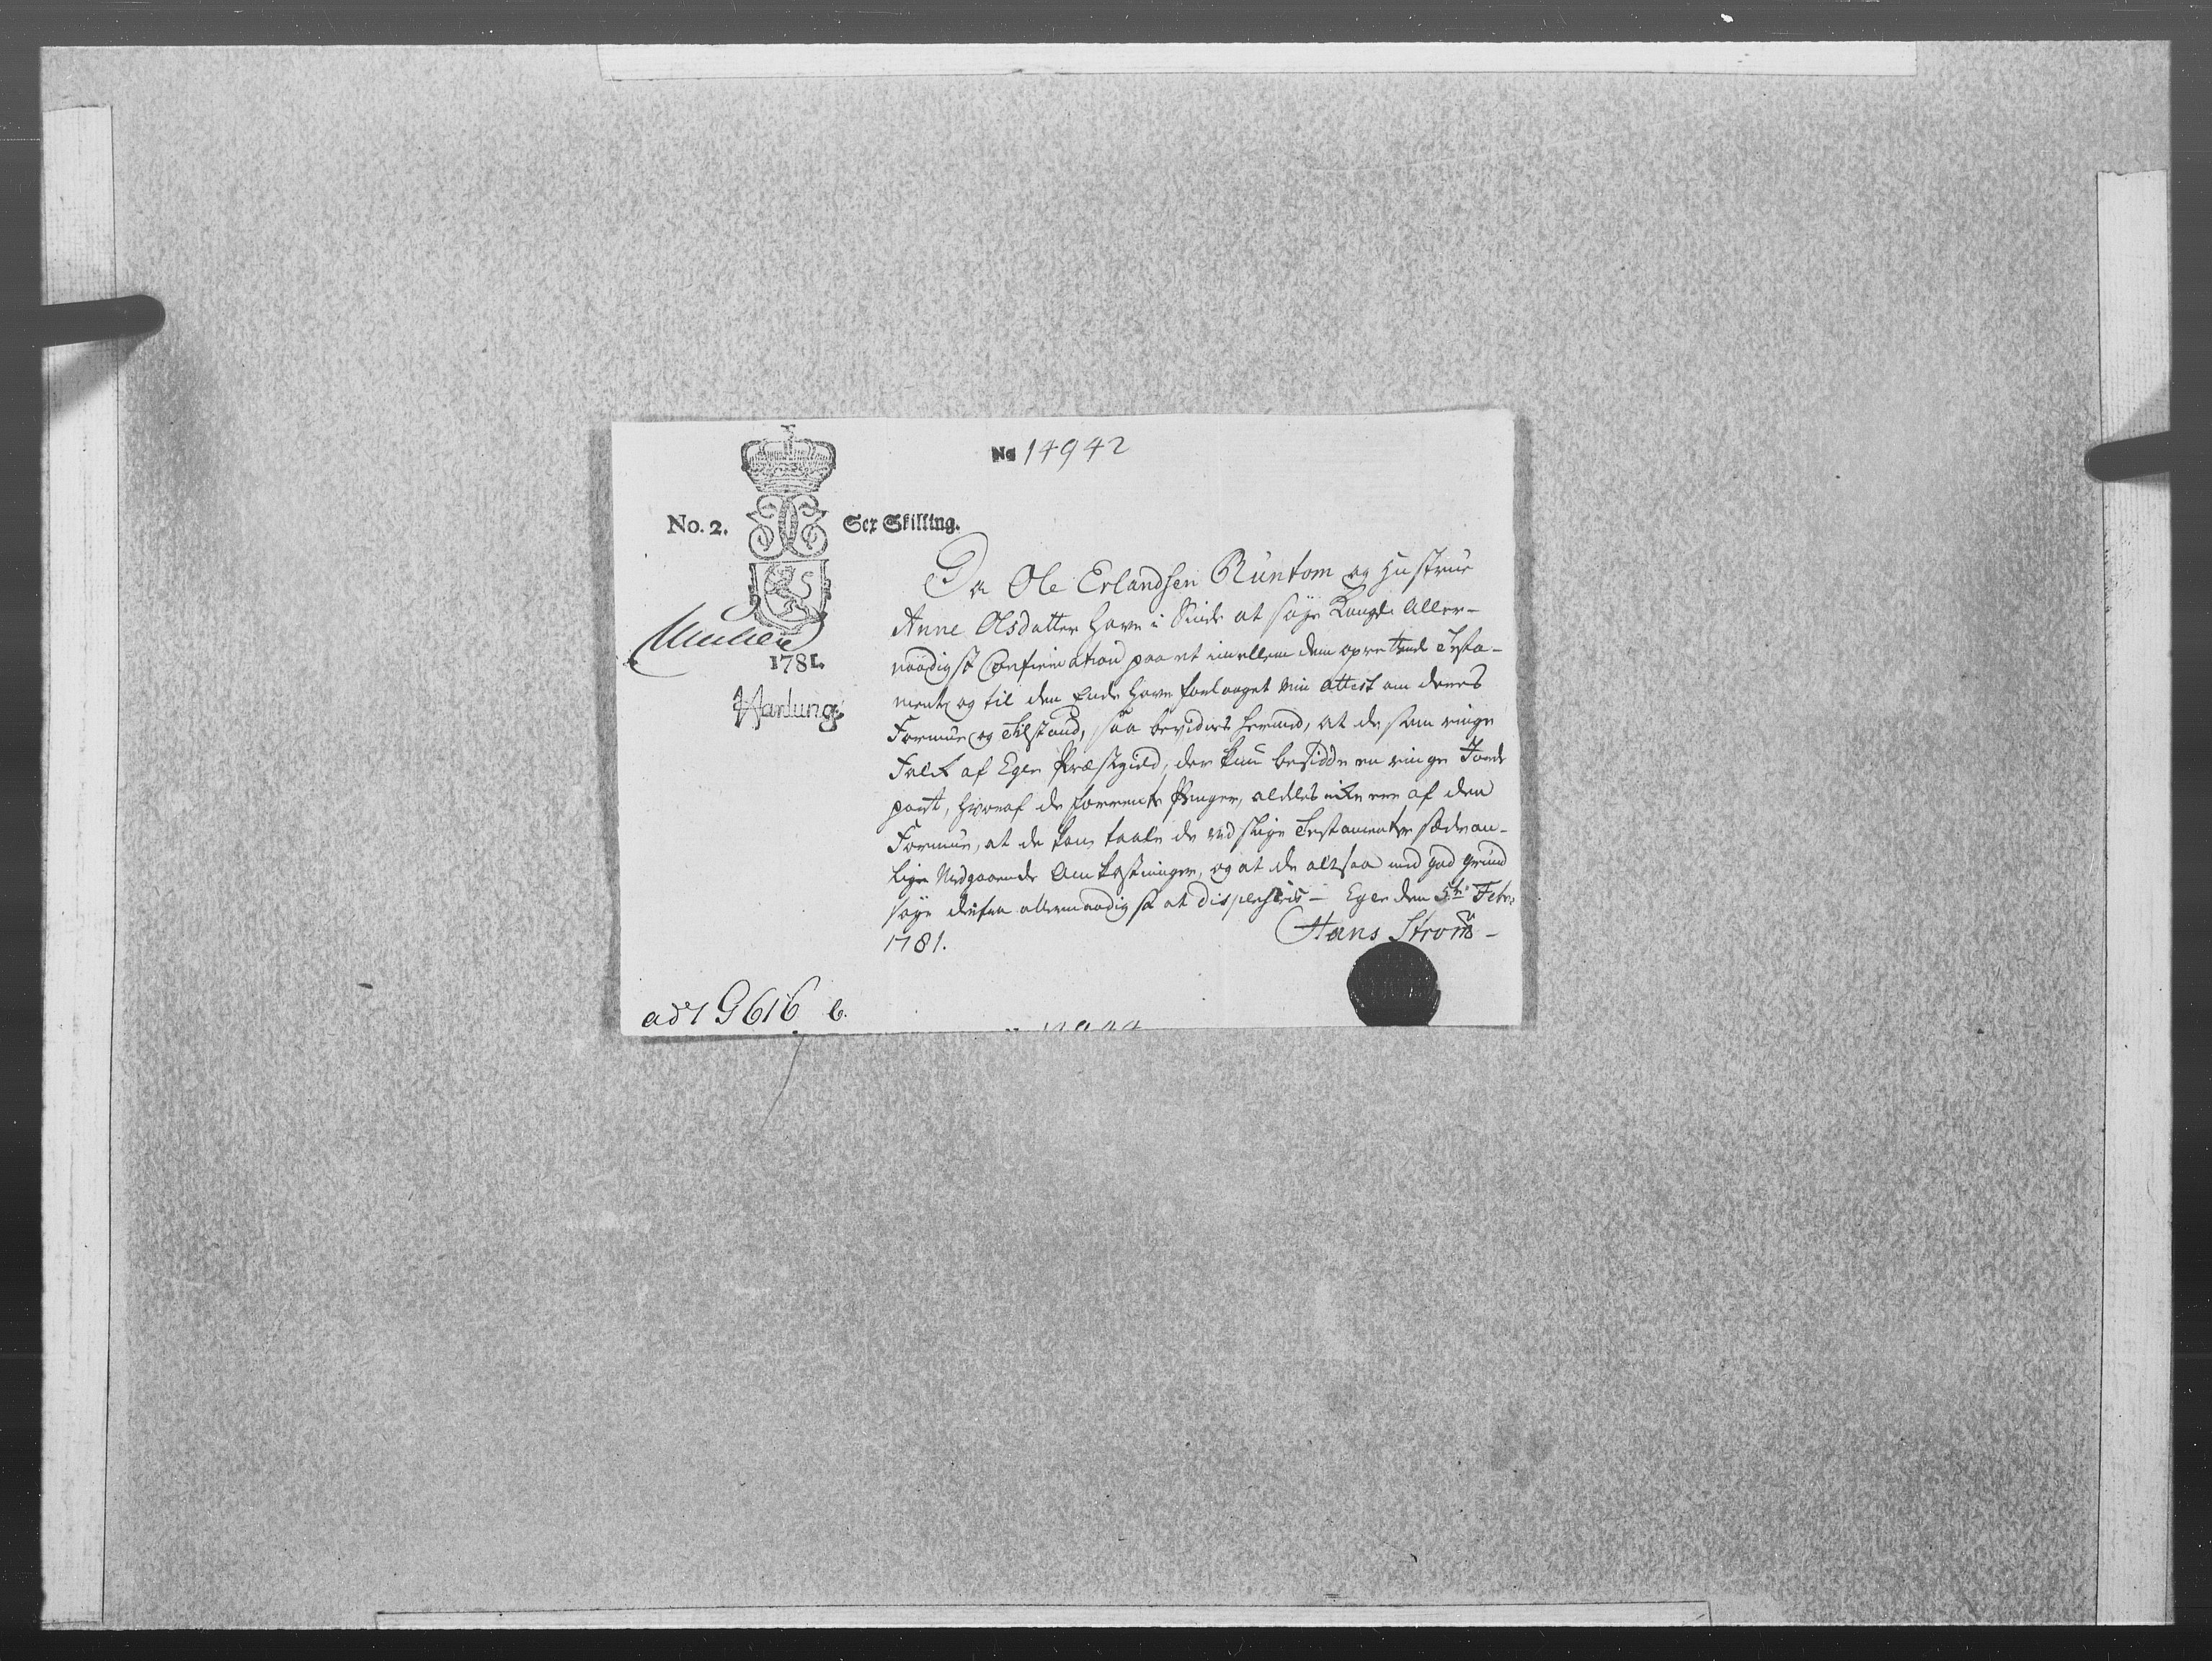 No 14942
No. 2. Sex Skilling.
1781.
Hartung
Da Ole Erlandsen Runtom og Hustrue
Anne Olsdatter have i Sinde at søge Kongl. Aller-
naadigst Confirmation paa et imellem dem oprettende Testa-
mente og til den Ende have forlanget min Attest om deres
Formue og Tilstand, saa bevidnes hermed, at de som ringe
Folk af Eger Præstegield, der kun besidde en ringe Jorde
part, hvoraf de forrente Penger, aldeles ikke ere af den
Formue, at de kan taale de ved slige Testamenter sædvan-
lige Medgaaende Omkostninger, og at de altsaa med god Grund
søge derfra allernaadigst at dispenseris - Eger den 5te Febr:
1781. Hans Strøm -
ad 19616 b.